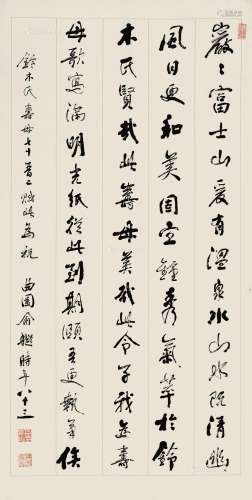 巖巖富士山爰有溫泉水山水既清幽
風日更和美固宜鍾秀氣萃於鈴
木氏賢哉此壽母美哉此令子我為壽
母歌寫滿明光紙從此到期頤吾更載筆俟
鈴木氏壽母七十晉二賦此為祝 曲園俞樾時年八十三